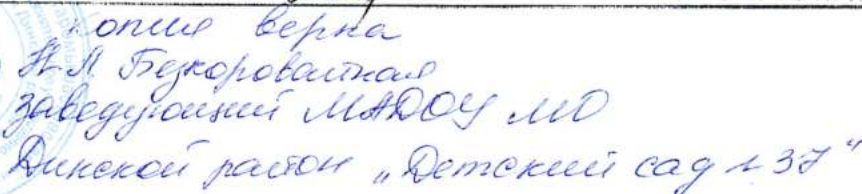 копия верна
Н.А. Безкоровайная
заведующий МАДОУ МО
Динской район „Детский сад №37"